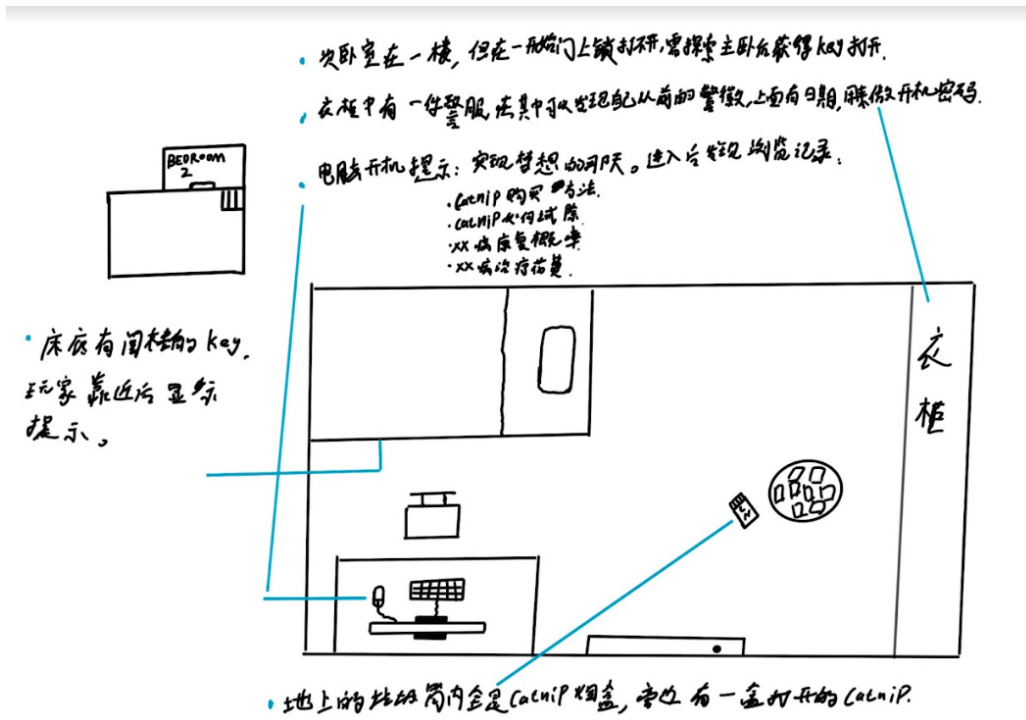 次卧室在一楼，但在一开始门上锁打不开，需探索主卧后获得key打开.
衣柜中有一件警服，在其中可以发现自己从前的警徽，上面有日期，用来做开机密码.
电脑开机提示：实现梦想的那天。进入后发现浏览记录：
·CatniP 购买方法.
·CatniP 如何试除
·xx病康复概率
·xx病治疗花费.
BEDROOM
2
床底有阁楼的key，
玩家靠近后显示
提示。
衣
柜
地上的垃圾筒内全是CatniP烟盒，旁边有一盒打开的CatniP.